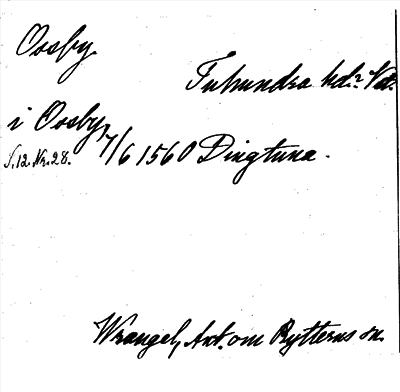 Oosby.
Tuhundra hd. Vd.
i Oosby 7/6 1560 Dingtuna.
S.12.Nr.28.
Wrangel, Ant. om Rytterns sn.